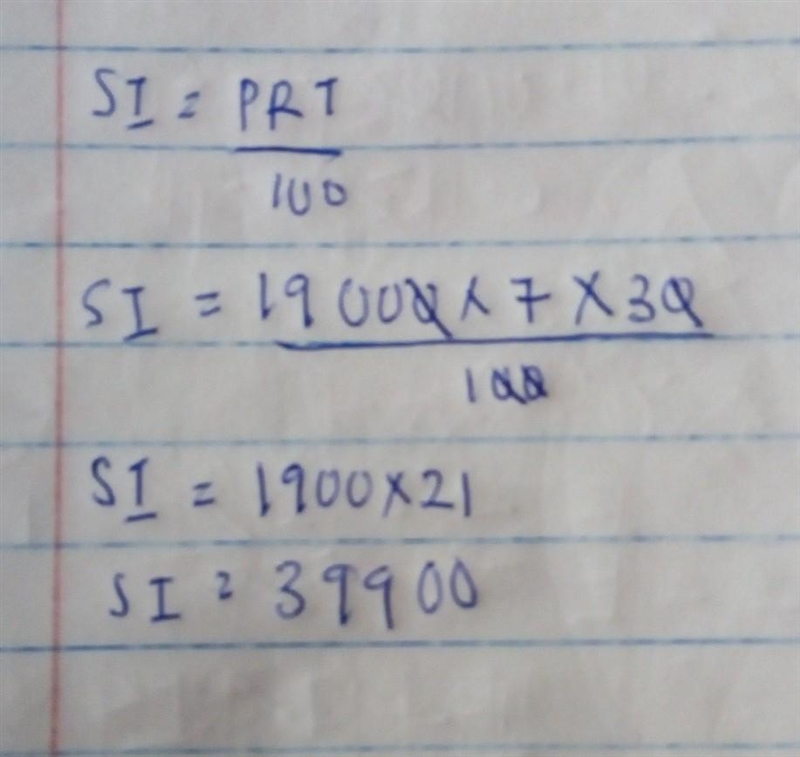 SI = PRT
100
SI = 19000 × 7 × 30
100
SI = 1900 × 21
SI = 39900